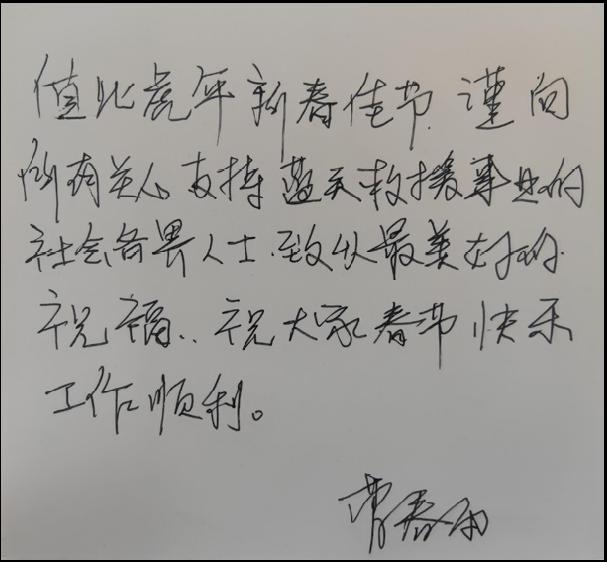 值此虎年新春佳节.谨向
所有关心支持蓝天救援事业的
社会各界人士.致以最美好的
祝福..祝大家春节快乐
工作顺利。
春雨